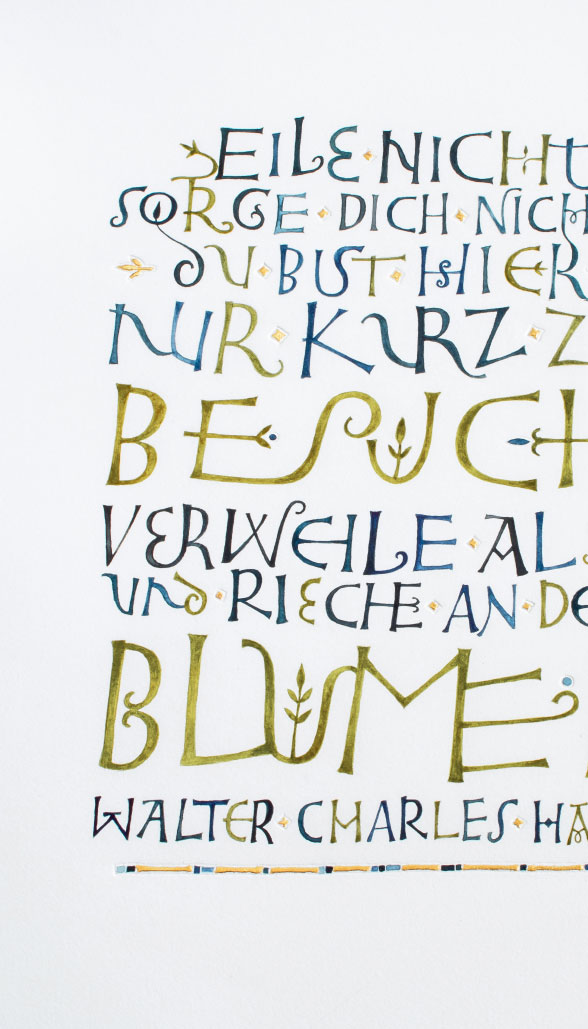 EILE · NICHT
SORGE · DICH · NICH
DU · BIST · HIER
NUR · KURZ · Z
BESUCH
VERWEILE · AL
UND · RIECHE · AN · DE
BLUME
WALTER · CHARLES · HA